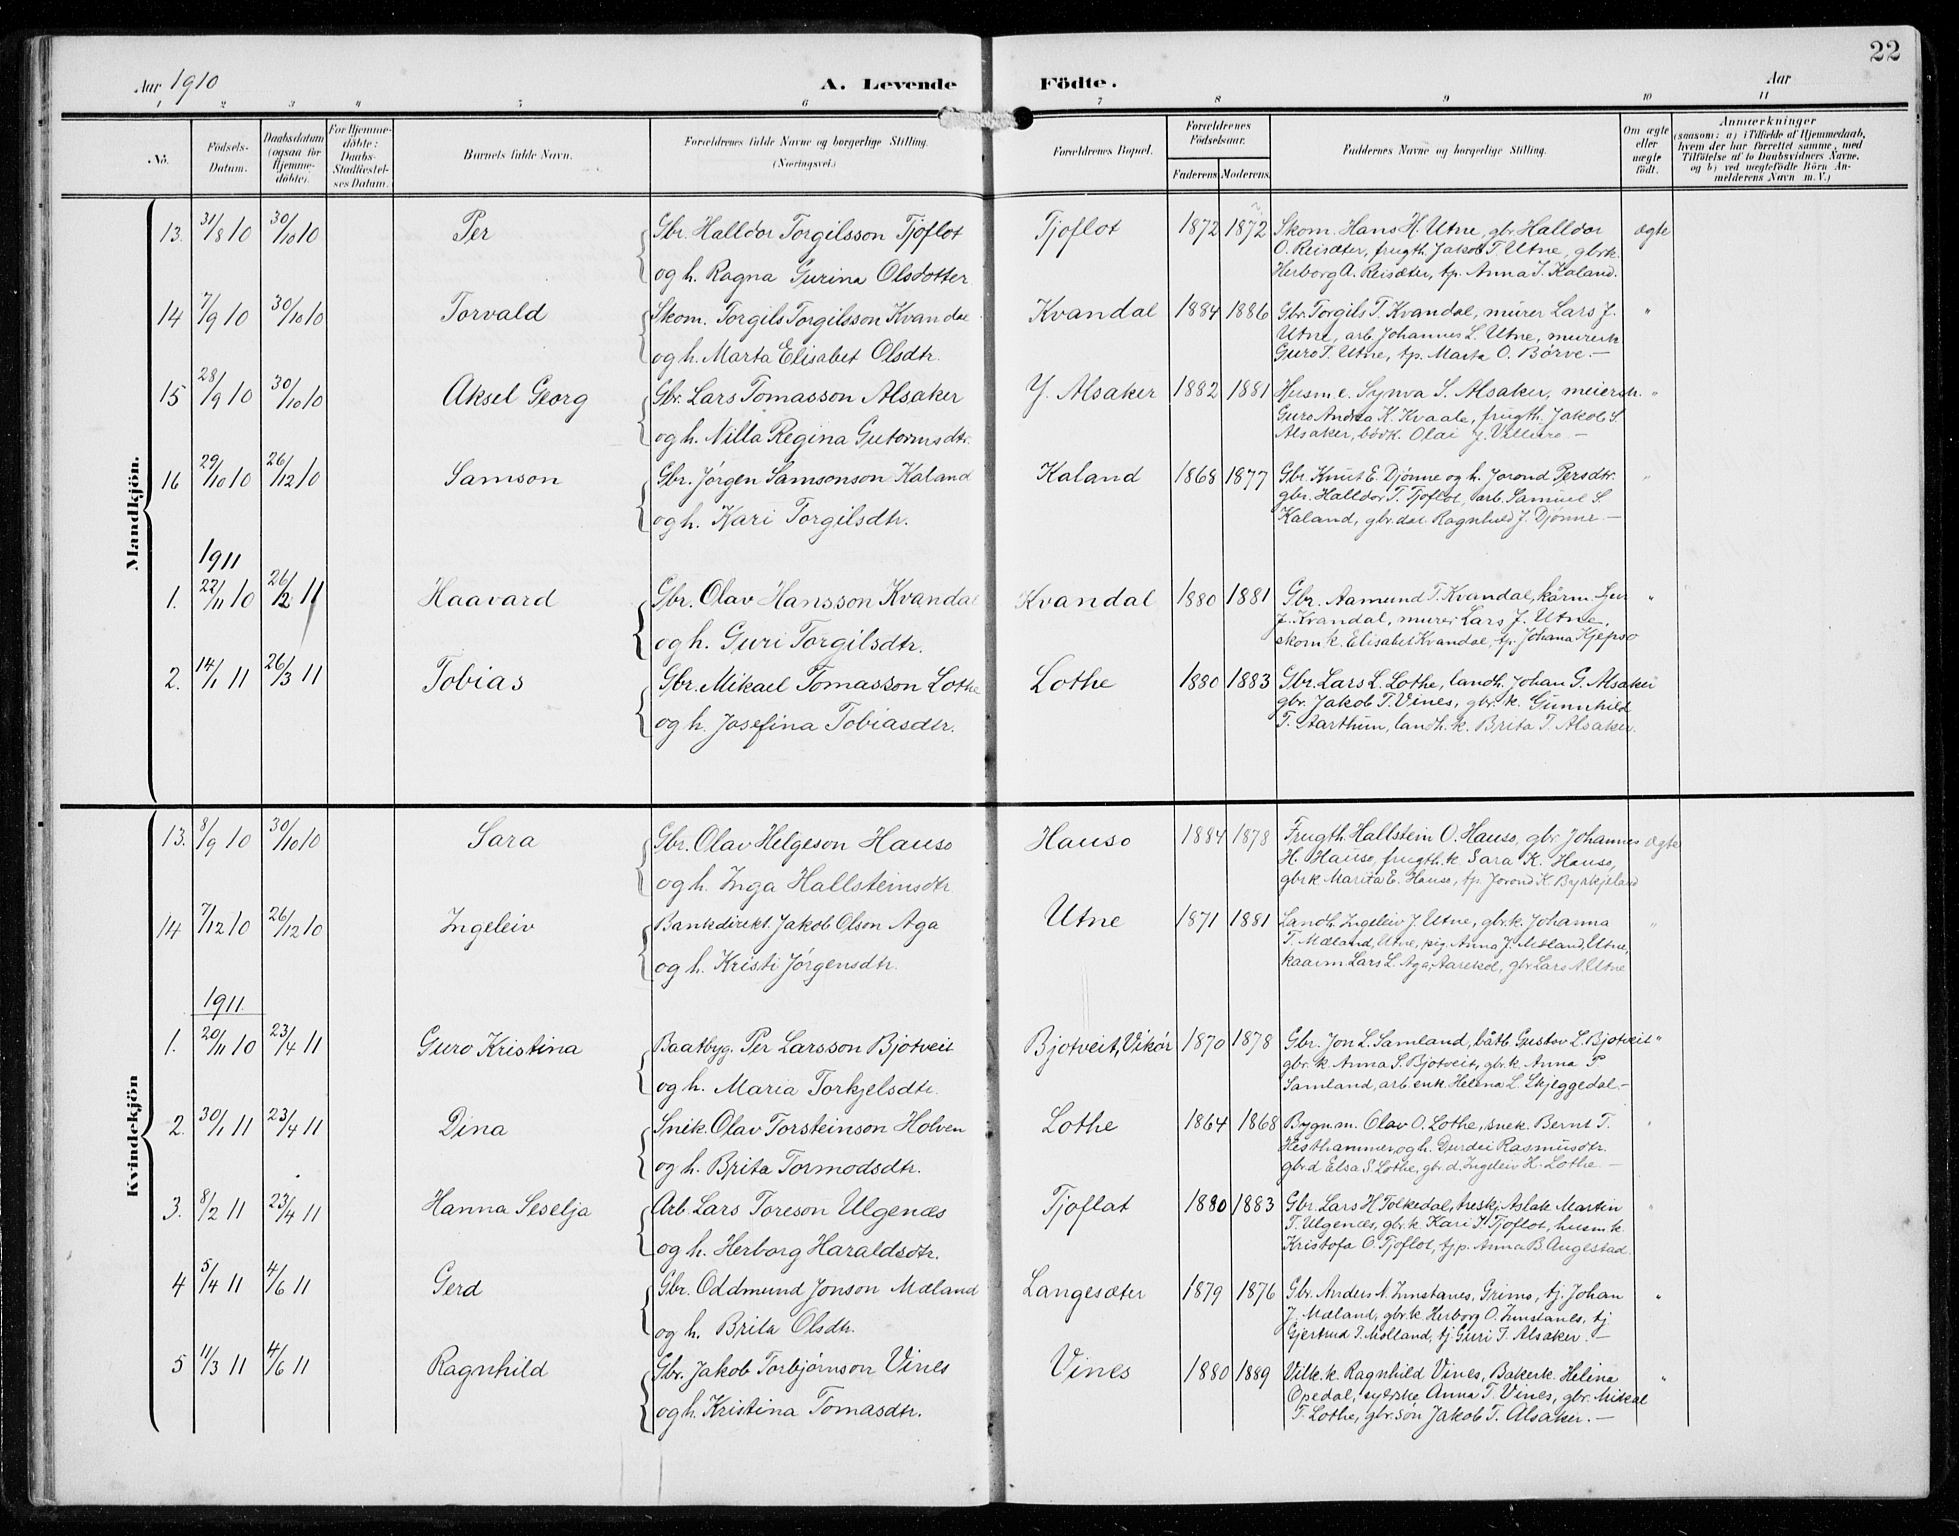 22
Aar 1910
A. Levende
Födte.
Aar
1 2 3 4 5 6 7 8 9 10 11
No.
Födsels-Datum.
Daabsdatum (ogsaa for Hjemme-döbte).
For Hjemme-döbte: Daabs-Stadfæstel-ses Datum.
Barnets fulde Navn.
Forældrenes fulde Navne og borgerlige Stilling. (Næringsvei.)
Forældrenes Bopæl.
Forældrenes Födselsaar.
Faderens. Moderens.
Faddernes Navne og borgerlige Stilling.
Om ægte eller uægte födt.
Anmærkninger
(saasom: a) i Tilfælde af Hjemmedaab,
hvem der har forrettet samme, med
Tilföielse af to Daabsvidners Navne,
og b) ved uægtefödte Börn An-
melderens Navn m. V.)
Mandkjön.
13. 31/8 10 30/10 10 Per Gbr. Halldor Torgilsson Tjoflot Tjoflot 1872 1872 Skom. Hans H. Utne, gbr. Halldor ægte
O. Reisæter, frugth. Jakob T. Utne, gbrk.
og h. Ragna Gurina Olsdotter Herborg A. Reisæter, tp. Anna J. Kaland.
14 7/9 10 30/10 10 Torvald Skom. Torgils Torgilsson Kvandal Kvandal 1884 1886 Gbr. Torgils T. Kvandal, murer Lars J. "
Utne, arb. Johannes L. Utne, murerk.
og h. Marta Elisabet Olsdtr. Guro T. Utne, tp. Marta O. Börve. —
15 28/9 10 30/10 10 Aksel Georg Gbr. Lars Tomasson Alsaker Y. Alsaker 1882 1881 Husm.e. Synva S. Alsaker, meiersk. "
Guro Andrea K. Kvaale, frugth. Jakob S.
og h. Nilla Regina Gutormsdtr. Alsaker, bödk. Olai J. —
16 29/10 10 26/12 10 Samson Gbr. Jörgen Samsonson Kaland Kaland 1868 1877 Gbr. Knut E. Djönne og h. Jorond Persdtr. "
gbr. Halldor T. Tjoflot, arb. Samuel S.
og h. Kari Torgilsdtr. Kaland, gbr.dat. Ragnhild J. Djönne. —
1911
1. 22/11 10 26/2 11 Haavard Gbr. Olav Hansson Kvandal Kvandal 1880 1881 Gbr. Aamund T. Kvandal, kårm. Sjur "
J. Kvandal, murer Lars J. Utne,
og h. Guri Torgilsdtr. skom.k. Elisabet Kvandal, tp. Johana Kjepso
2. 14/1 11 26/3 11 Tobias Gbr. Mikael Tomasson Lothe Lothe 1880 1883 Gbr. Lars L. Lothe, landh. Johan G. Alsaker "
gbr. Jakob T. Vines, gbr. k. Gunnhild
og h. Josefina Tobiasdtr. T. Aarthun, landh. k. Brita T. Alsaker.
Kvindekjön
13. 8/9 10 30/10 10 Sara Gbr. Olav Helgeson Hauso Hauso 1884 1878 Frugth. Hallstein O. Hauso, gbr. Johannes ægte
H. Hauso, frugth.k. Sara K. Hauso,
og h. Inga Hallsteinsdtr gbrk Marita E. Hauso, tp. Jorond K. Byrkjeland
14 7/12 10 26/12 10 Ingeleiv Bankdirekt. Jakob Olson Aga Utne 1871 1881 Landh. Ingeleiv J. Utne, gbr.k. Johanna "
T. Mæland, Utne, pig. Anna J. Mæland, Utne,
og h. Kristi Jörgensdtr. kaarm Lars L. Aga, Aarekol, gbr. Lars A. Utne
1911.
1. 20/11 10 23/4 11 Guro Kristina Baatbyg. Per Larsson Bjotveit Bjotveit, Vikör 1870 1878 Gbr. Jon L. Samland, båtb. Gustav L. Bjotveit "
gbr. k. Anna S. Bjotveit, gbr. k. Anna P.
og h. Maria Torkjelsdtr. Samland, arb. enk. Helena L. Skjeggedal. —
2. 30/1 11 23/4 11 Dina Snik. Olav Torsteinson Holven Lothe 1864 1868 Bygn.m. Olav O. Lothe, snek. Bernt T. "
Hesthammer og h. Durdei Rasmusdtr.
og h. Brita Tormodsdtr. gbr.d Elsa S. Lothe, gbr. d. Ingeleiv H. Lothe. —
3. 8/2 11 23/4 11 Hanna Seselja Arb. Lars Toreson Ulgenæs Tjoflat 1880 1883 Gbr. Lars H. Tolkedal, tresk. Aslak Martin "
T. Ulgenæs, gbr. k. Kari J. Tjoflot, husm.k.
og h. Herborg Haraldsdtr. Kristofa O. Tjoflot, tjp. Anna B. Augestad.
4 5/4 11 4/6 11 Gerd Gbr. Oddmund Jonson Mæland Langesæter 1879 1876 Gbr. Anders N. Instanes, Grimo, tj. Johan "
J. Mæland, gbr. k. Herborg O. Instanes, tj.
og h. Brita Olsdtr. Gjertrud T. Molland, tj. Guri T. Alsaker. —
5 11/3 11 4/6 11 Ragnhild Gbr. Jakob Torbjörnson Vines Vines 1880 1889 Vilk.k. Ragnhild Vines, Bakerk. Helina "
Opedal, syerske Anna T. Vines, gbr. Mikal
og h. Kristina Tomasdtr. T. Lothe, gbr. sön Jakob T. Alsaker. —